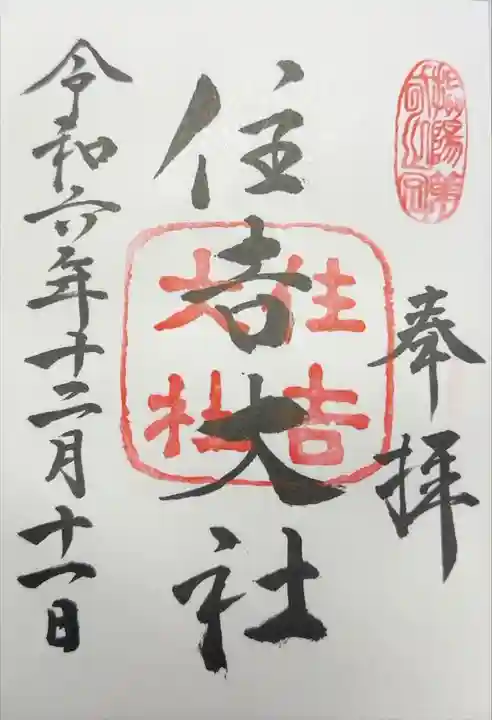 奉拝
住吉大社
住吉
大社
令和六年十二月十一日